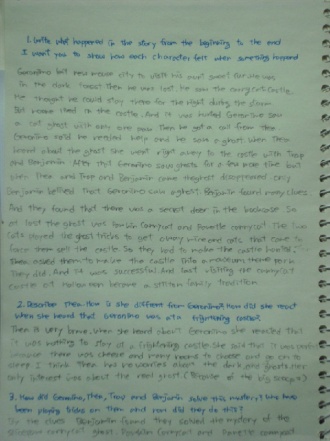 1. Write what happened in the story from the beginning to the end
I want you to show how each character felt when something happened
Geronimo left new mouse city to visit his aunt sweet fur. He was
in the dark forest then he was lost. He saw the cannycat castle.
He thought he could stay there for the night during the storm
But no one lived in the castle. And it was haunted. Geronimo saw
a cat ghost with only one paw. Then he got a call from Thea.
Geronimo said he needed help and he saw a ghost. When Thea
heard about the ghost she went right away to the castle with Trap
and Benjamin. After that Geronimo saw ghosts for a few more time but
when Thea and Trap and Benjamin came they disappeared. Only
Benjamin believed that Geronimo saw a ghost. Benjamin found many clues.
And they found that there was a secret door in the bookcase. So
at last the ghost was and cannycat. The two
cats played the ghost tricks to get other mice and rats that come to
the castle. So they had to make the castle haunted.
Thea asked them to make the castle into a museum theme park.
They did. And it was successful. And last visiting the cannycat
castle at Halloween become a stilton family tradition.
2. Describe Thea. How is she different from Geronimo? How did she react
when she heard that Geronimo was at a frightening castle?
Thea is very brave. When she heard about Geronimo she reacted that
it was nothing to stay at a frightening castle. she said that it was
because there was cheese and many rooms to choose and go on to
sleep. I think Thea had no worries about the dark and ghosts. Her
only interest was about the real ghost (Because of the big scoops).
3. How did Geronimo, Thea, Trap and Benjamin solve this mystery? Who have
been playing tricks on them and how did they do this?
By the clues Benjamin found they solved the mystery of the
cannycat ghost. cannycat and cannycat